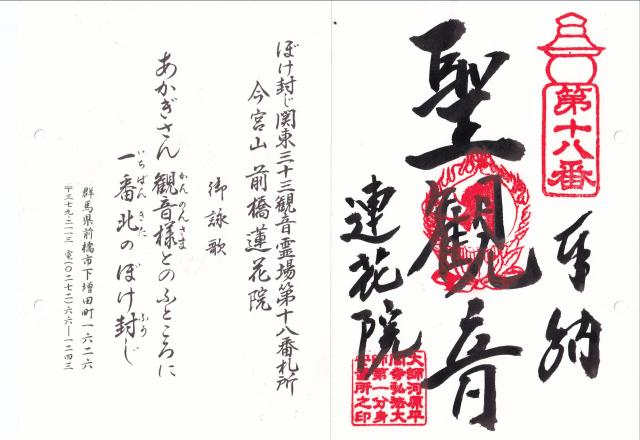 第十八番
奉納
聖観音
蓮花院
ぼけ封じ関東三十三観音霊場第十八番札所
今宮山 前橋蓮花院
御詠歌
あかぎさん 観音様とのふところに
かんのんさま
一番北のぼけ封じ
いちばん きた ふう
群馬県前橋市下増田町一六二六
〒三七九二一一三 電(〇二七二)六六ー一二四三